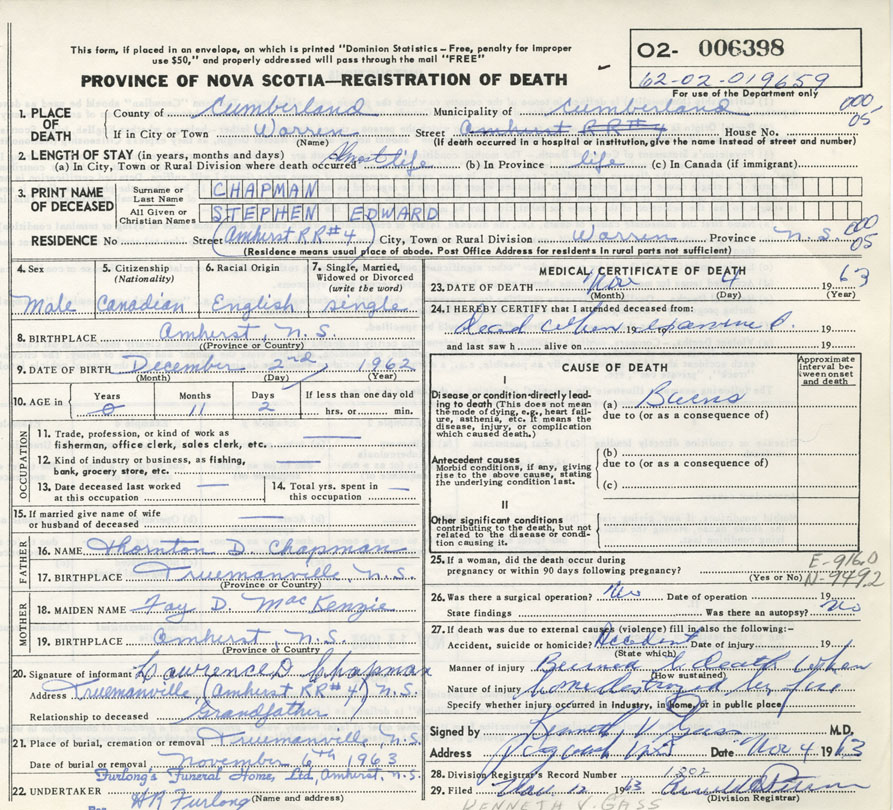 This form, if placed in an envelope, on which is printed "Dominion Statistics—Free, penalty for improper
use $50," and properly addressed will pass through the mail "FREE"
O2- 006398
62-02-019659
For use of the Department only
PROVINCE OF NOVA SCOTIA—REGISTRATION OF DEATH
1. PLACE OF DEATH County of Cumberland Municipality of Cumberland 000
If in City or Town Warren Street Amhurst RR#4 House No. 05
(Name) (If death occurred in a hospital or institution, give the name instead of street and number)
2. LENGTH OF STAY (in years, months and days)
(a) In City, Town or Rural Division where death occurred Almost life (b) In Province life (c) In Canada (if immigrant)
3. PRINT NAME OF DECEASED Surname or Last Name CHAPMAN
All Given or Christian Names STEPHEN EDWARD
RESIDENCE No Street (Amhurst RR#4) City, Town or Rural Division Warren Province N.S. 000 05
(Residence means usual place of abode. Post Office Address for residents in rural parts not sufficient)
4. Sex 5. Citizenship (Nationality) 6. Racial Origin 7. Single, Married, Widowed or Divorced (write the word)
Male Canadian English single
8. BIRTHPLACE Amherst, N.S.
(Province or Country)
9. DATE OF BIRTH December 2nd, 1962
(Month) (Day) (Year)
10. AGE in Years Months Days If less than one day old
0 11 2 hrs. or min.
OCCUPATION
11. Trade, profession, or kind of work as fisherman, office clerk, sales clerk, etc. —
12. Kind of industry or business, as fishing, bank, grocery store, etc. —
13. Date deceased last worked at this occupation — 14. Total yrs. spent in this occupation —
15. If married give name of wife or husband of deceased —
FATHER
16. NAME Thornton D. Chapman
17. BIRTHPLACE Truemanville, N.S.
(Province or Country)
MOTHER
18. MAIDEN NAME Fay D. MacKenzie
19. BIRTHPLACE Amherst, N.S.
(Province or Country)
20. Signature of informant Lawrence D Chapman
Address Truemanville (Amherst RR#4) N.S.
Relationship to deceased Grandfather
21. Place of burial, cremation or removal Truemanville, N.S.
Date of burial or removal November 6th 1963
Furlong's Funeral Home, Ltd, Amherst, N.S.
22. UNDERTAKER H R Furlong
(Name and address)
MEDICAL CERTIFICATE OF DEATH
23. DATE OF DEATH Nov 4 1963
(Month) (Day) (Year)
24. I HEREBY CERTIFY that I attended deceased from:
dead when 19 examined. 19
and last saw h alive on 19
CAUSE OF DEATH
Approximate interval between onset and death
I
Disease or condition directly leading to death (This does not mean the mode of dying, e.g., heart failure, asthenia, etc. It means the disease, injury, or complication which caused death.)
(a) Burns
due to (or as a consequence of)
Antecedent causes
Morbid conditions, if any, giving rise to the above cause, stating the underlying condition last.
(b)
due to (or as a consequence of)
(c)
II
Other significant conditions
contributing to the death, but not related to the disease or condition causing it.
25. If a woman, did the death occur during pregnancy or within 90 days following pregnancy?
(Yes or No)
E-916.0
N-949.2
26. Was there a surgical operation? No Date of operation 19
State findings Was there an autopsy? No
27. If death was due to external causes (violence) fill in also the following:—
Accident, suicide or homicide? Accident Date of injury 19
(State which)
Manner of injury Burned to death when
(How sustained)
Nature of injury home destroyed by fire
Specify whether injury occurred in Industry, in Home, or in public place
Signed by Kenneth V Gass M.D.
Address Date Nov 4 1963
28. Division Registrar's Record Number 1202
29. Filed Nov. 12 1963
(Division Registrar)
KENNETH V. GASS